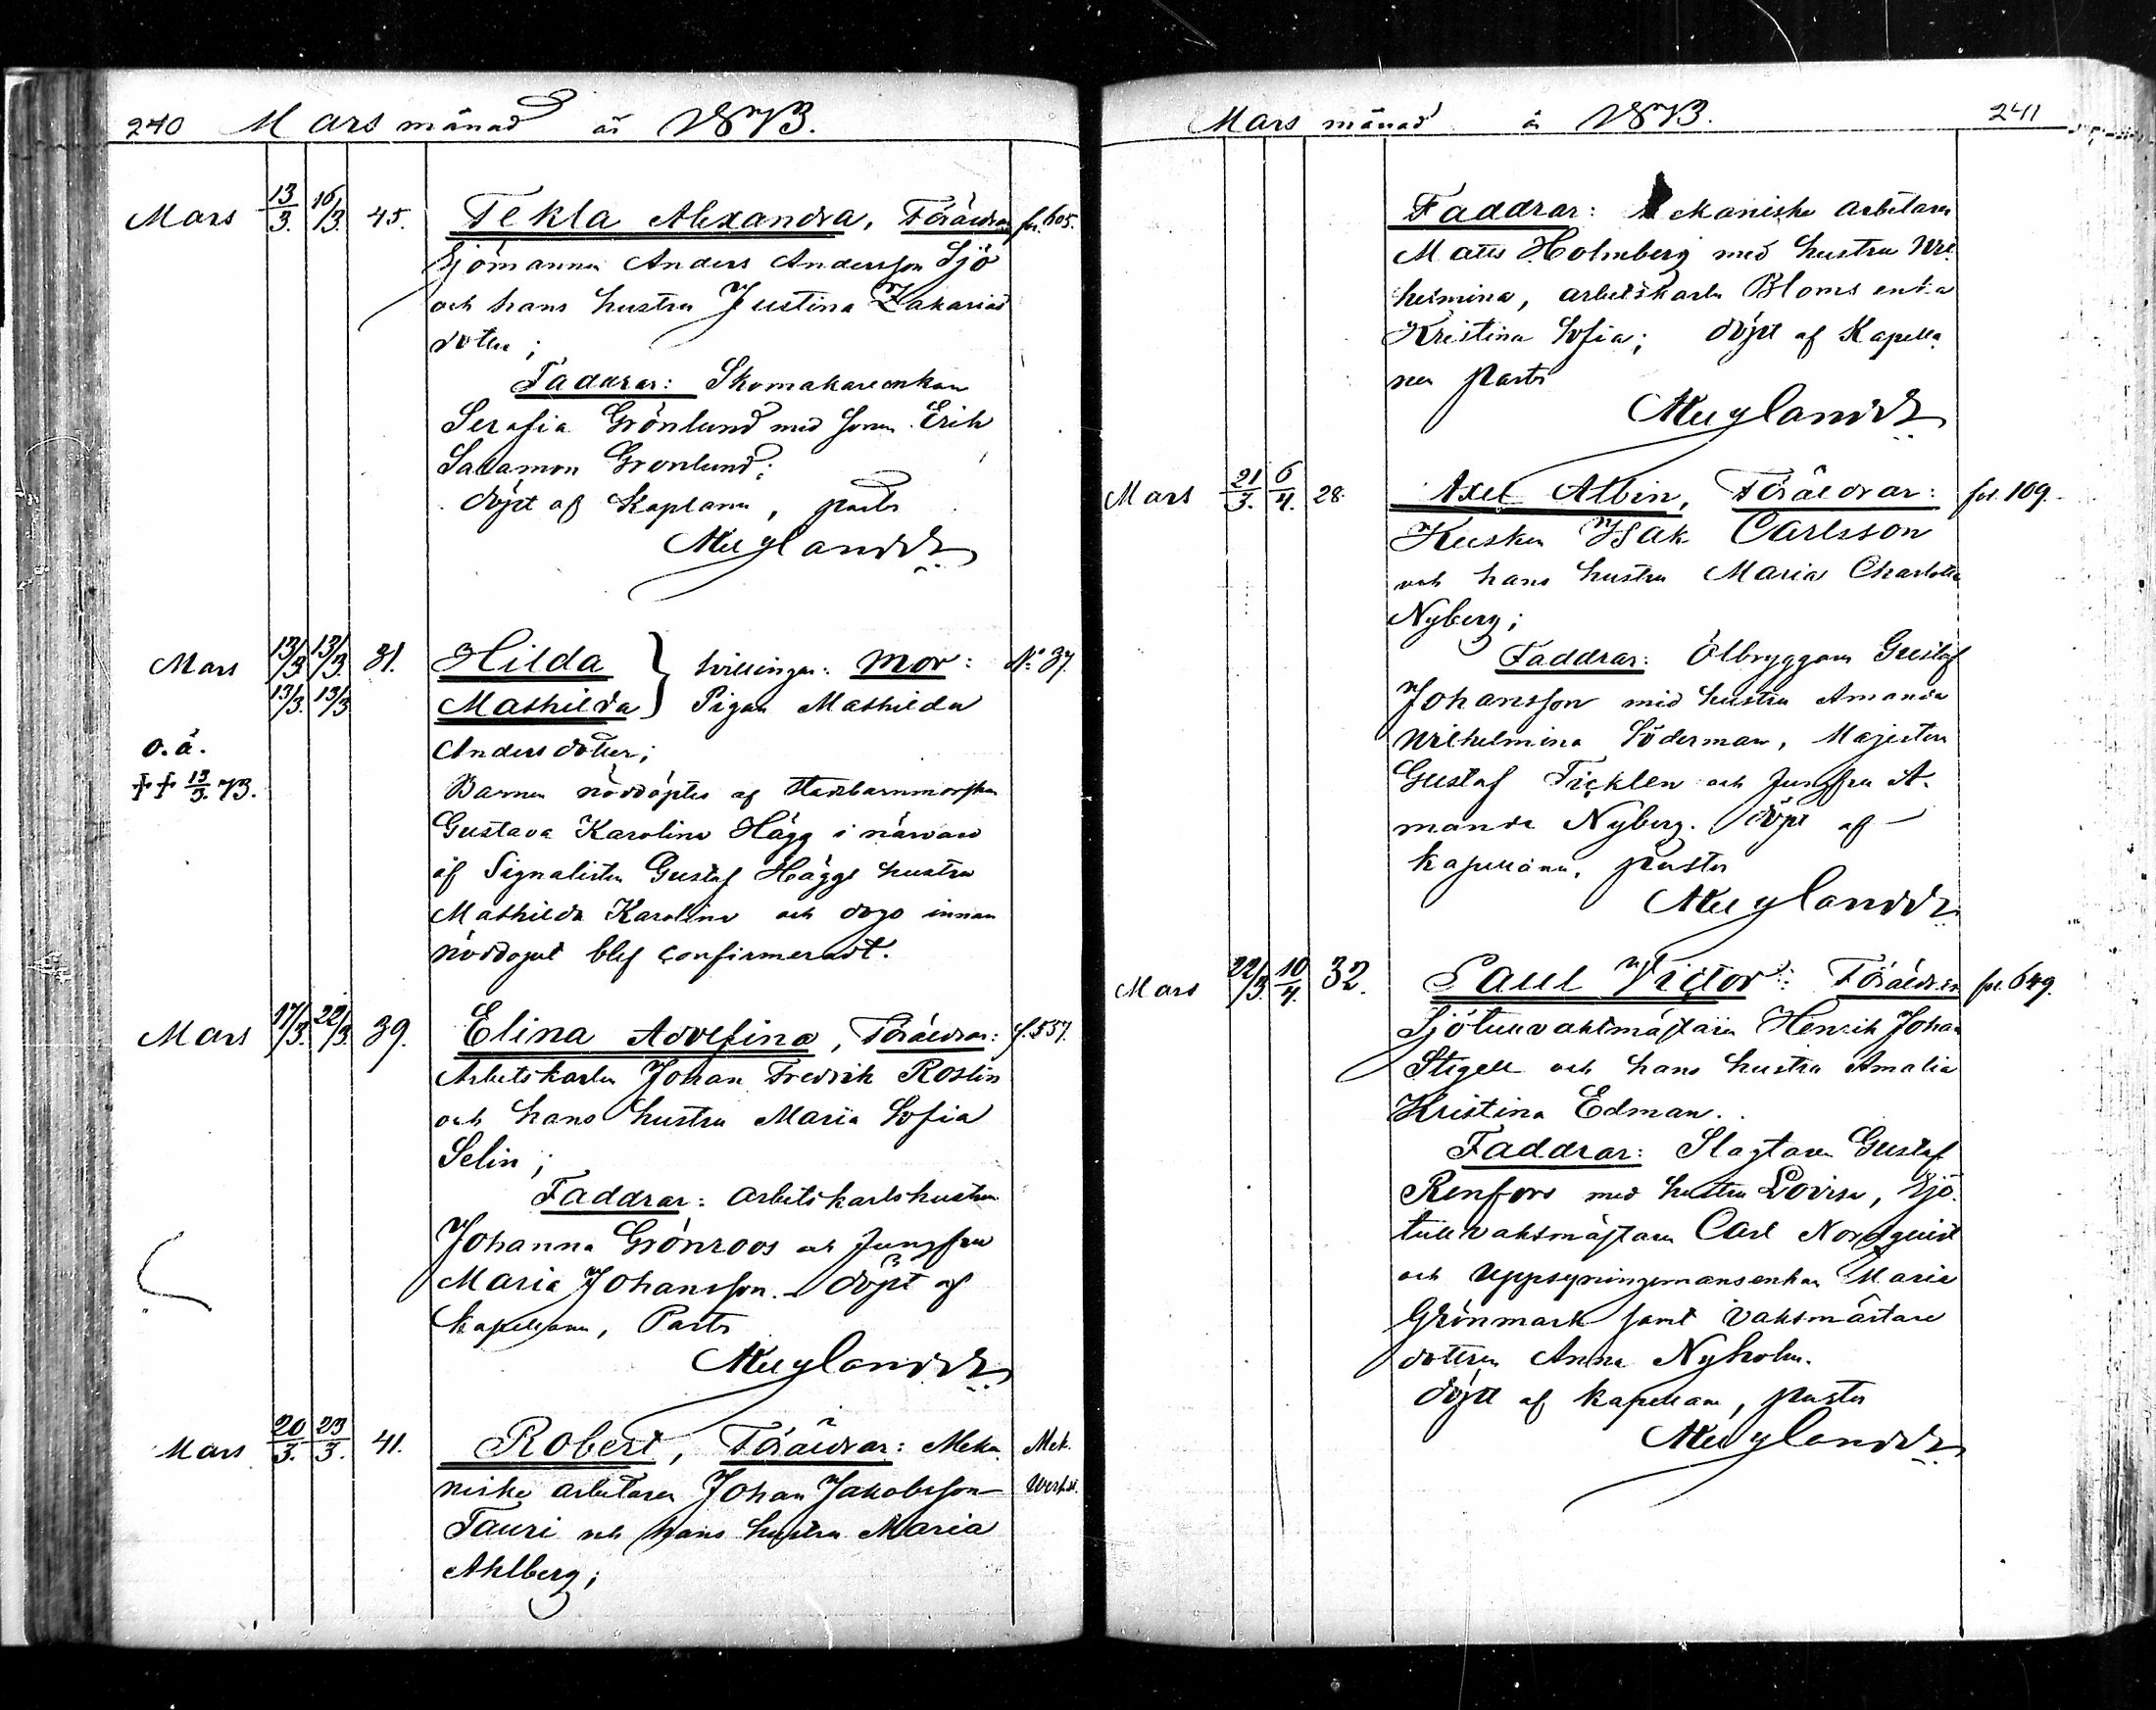 240 Mars månad år 1873.
Mars 13/3. 16/3. 45. Tekla Alexandra, Föräldrar fol. 605.
Sjömannen Anders Andersson Sjö
och hans hustru Justina Zakarias
dotter;
Faddrar: Skomakareenkan
Serafia Grönlund med sonen Erik
Salamon Gronlund;
döpt af Kaplanen, pastor
Mars 13/3 13/3. 31. Hilda } tvillingar: Mor: No 37.
13/3. 13/3 Mathilda } Pigan Mathilda
o. ä. Andersdotter;
†† 13/3. 73. Barnen nöddöptes af Stadsbarnmorskan
Gustava Karolina Hägg i närvaro
af Signalisten Gustaf Häggs hustru
Mathilda Karolina och dogo innan
nöddopet blef confirmeradt.
Mars 17/3. 22/3. 39. Elina Adolfina, Föräldrar: f. 557.
Arbetskarlen Johan Fredrik Roslin
och hans hustru Maria Sofia
Selin;
Faddrar: arbetskarlshustrun
Johanna Grönroos och Jungfru
Maria Johansson. döpt af
kapellanen, Pastor
Mars 20/3. 23/3. 41. Robert, Föräldrar: Meka Mek.
niske arbetaren Johan Jakobsson Werkst.
Tauri och hans hustru Maria
Ahlberg;
Mars månad år 1873. 241
Faddrar: Mekaniske arbetaren
Matts Holmberg med hustru Wil
helmina, arbetskarlen Bloms enka
Kristina Sofia; döpt af Kapella
nen Pastor
Mars 21/3. 6/4. 28. Axel Albin, Föräldrar: fol. 109.
Kusken Isak Carlsson
och hans hustru Maria Charlotta
Nyberg;
Faddrar: Ölbryggaren Gustaf
Johansson med hustru Amanda
Wilhelmina Söderman, Majestern
Gustaf Ficklen och Jungfru A.
manda Nyberg. döpt af
kapellanen, pastor
Mars 22/3. 10/4. 32. Paul Victor: Föräldrar fol. 649.
Sjötullvaktmästaren Henrik Johan
Stigell och hans hustru Amalia
Kristina Edman.
Faddrar: Slagtaren Gustaf
Renfors med hustru Lovisa, Sjö
tullvaktmästaren Carl Nordquist
och uppsyningsmansenkan Maria
Grönmark samt vaktmästare
dottren Anna Nyholm.
döpt af kapellanen, pastor